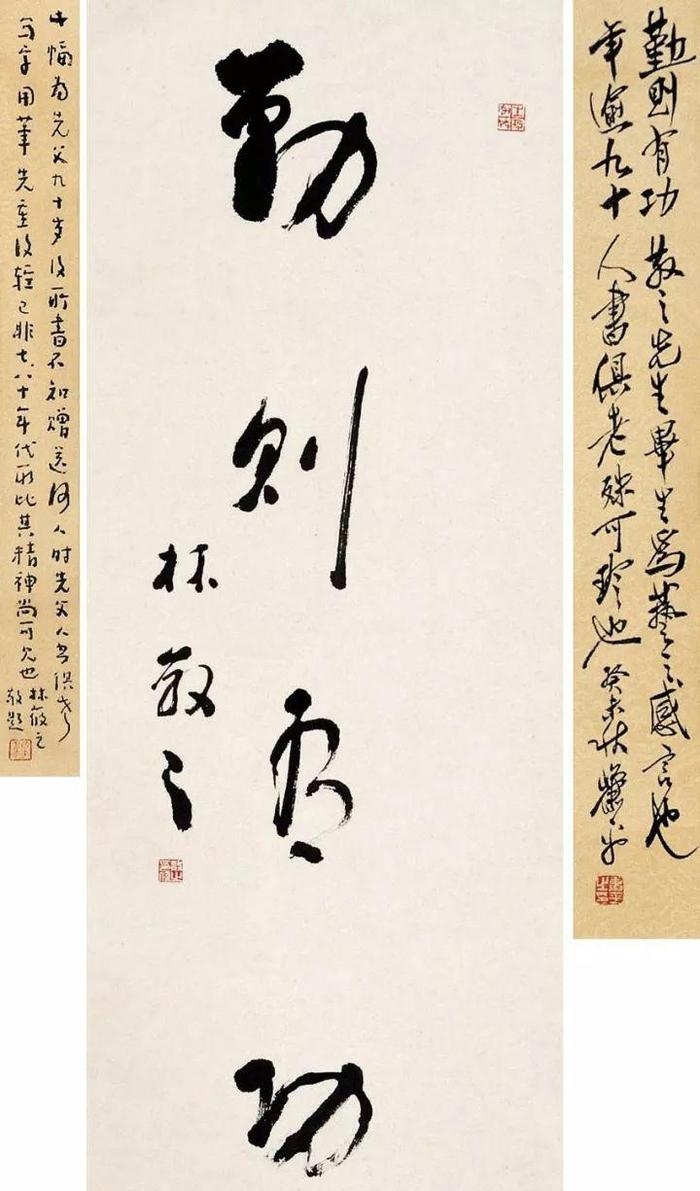 勤則有功 散之先生畢生爲藝之感言也
年逾九十人書俱老殊可珍也 癸未秋蕭平
勤則有功
林散之
幅为先父九十岁後所書不知赠送何人时先父人書俱老
写字用筆先重後輕已非七八十年代所比其精神尚可也
林筱之
敬題